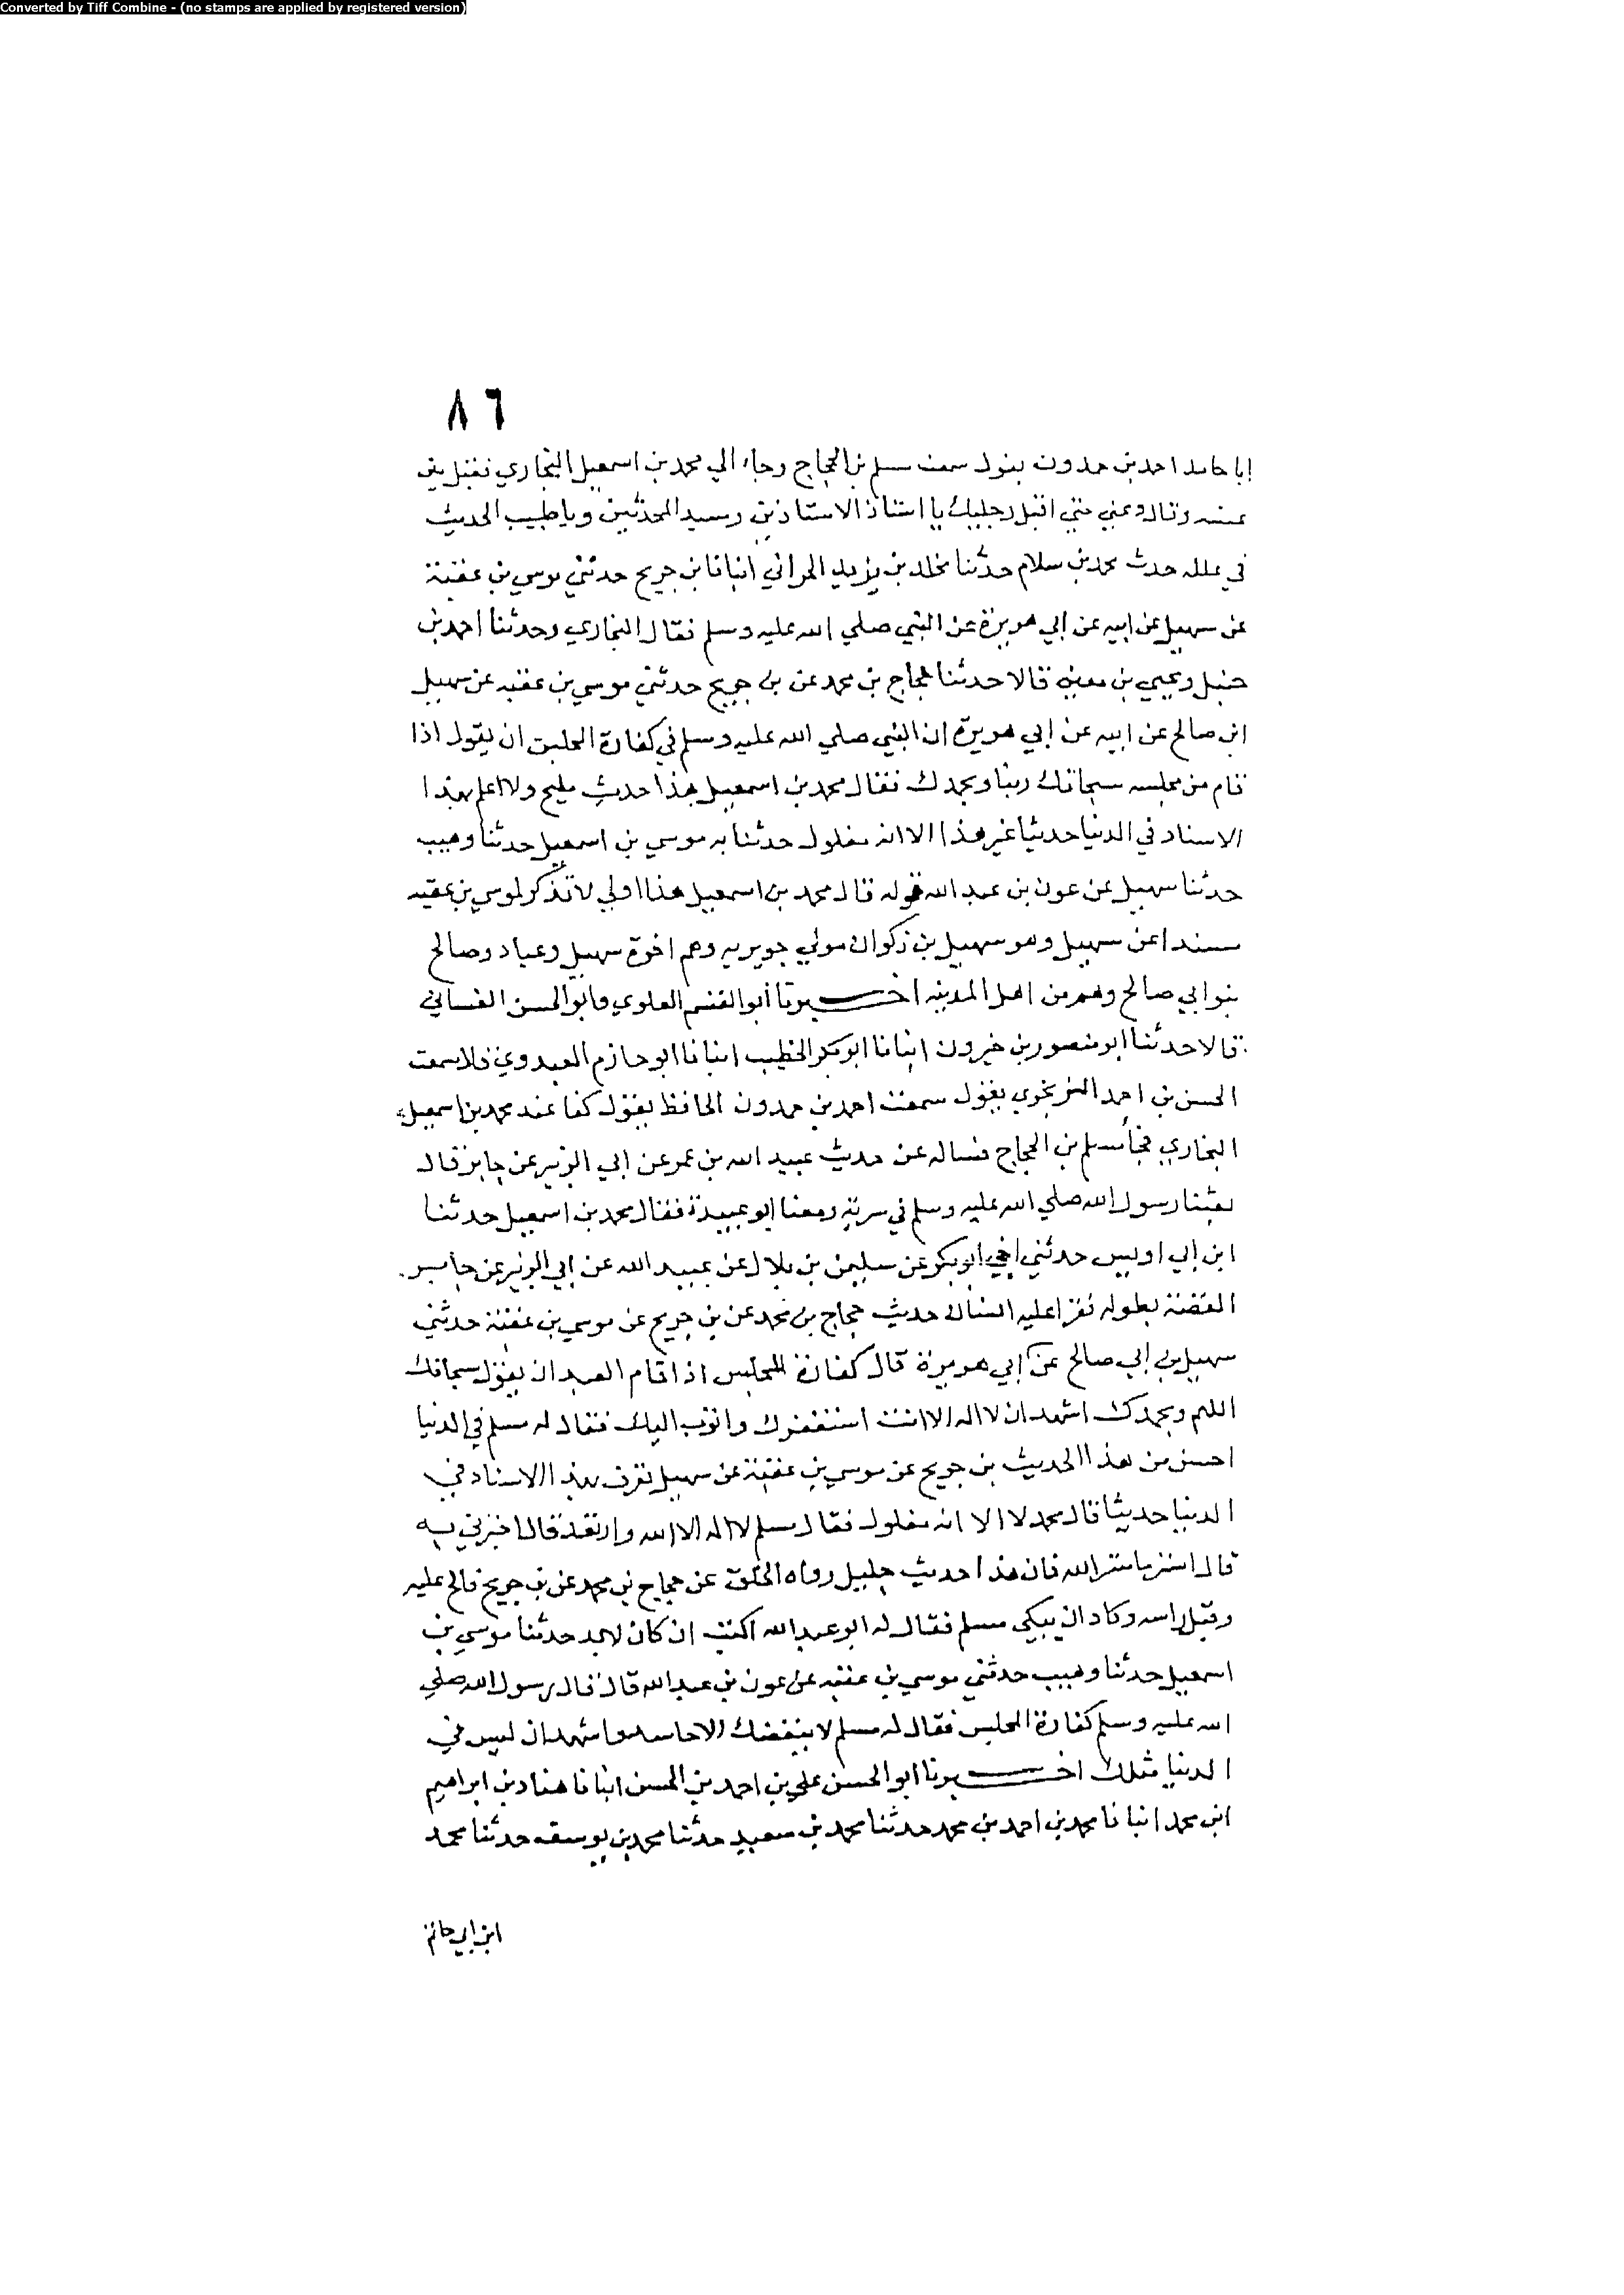 Converted by Tiff Combine - (no stamps are applied by registered version)
٨٦
ابا حامد احمد بن حمدون يقول سمعت مسلم بن الحجاج وجاء الي محمد بن اسمعيل البخاري فقبل بين
عينيه وقال دعني حتي اقبل رجليك يا استاذ الاستاذين وسيد المحدثين ويا طبيب الحديث
في علله حدث محمد بن سلام حدثنا مخلد بن يزيد الحراني انبانا بن جريج حدثني موسي بن عقبة
عن سهيل عن ابيه عن ابي هريرة عن النبي صلي الله عليه وسلم فقال البخاري وحدثنا احمد بن
حنبل ويحيي بن معين قالا حدثنا حجاج بن محمد عن بن جريج حدثني موسي بن عقبه عن سهيل
ابن صالح عن ابيه عن ابي هريرة ان النبي صلي الله عليه وسلم في كفارة المجلس ان يقول اذا
قام من مجلسه سبحانك ربنا وبحمدك فقال محمد بن اسمعيل هذا حديث مليح ولا اعلم بهذا
الاسناد في الدنيا حديثا غير هذا الا انه معلول حدثنا به موسي بن اسمعيل حدثنا وهيب
حدثنا سهيل عن عون بن عبد الله قوله قال محمد بن اسمعيل هذا اولي لا تذكر لموسي بن عقبه
مسندا عن سهيل وهو سهيل بن ذكوان مولي جويريه وهم اخوة سهيل وعباد وصالح
بنو ابي صالح وهم من اهل المدينه اخبرنا أبو القسم العلوي وابو الحسن الغساني
قالا حدثنا ابو منصور بن خيرون انبانا ابو بكر الخطيب انبانا ابو حازم العبدوي قال سمعت
الحسن بن احمد الزنجوي يقول سمعت احمد بن حمدون الحافظ يقول كنا عند محمد بن اسمعيل
البخاري فجأ مسلم بن الحجاج فساله عن حديث عبيد الله بن عمر عن ابي الزبير عن جابر قال
بعثنا رسول الله صلي الله عليه وسلم في سرية ومعنا ابو عبيدة فقال محمد بن اسمعيل حدثنا
ابن ابي اويس حدثني اخي ابو بكر عن سليمن بن بلال عن عبيد الله عن ابي الزبير عن جابر
القصة بطوله فقرا عليه انسان حديث حجاج بن محمد عن بن جريج عن موسي بن عقبة حدثني
سهيل بن ابي صالح عن ابي هريرة قال كفارة المجلس اذا قام العبد ان يقول سبحانك
اللهم وبحمدك اشهد ان لا اله الا انت استغفرك واتوب اليك فقال له مسلم في الدنيا
احسن من هذا الحديث بن جريج عن موسي بن عقبة عن سهيل تعرف بهذا الاسناد في
الدنيا حديثا قال محمد لا الا انه معلول فقال مسلم لا اله الا الله وارتعد قال اخبرني به
قال استر ما ستر الله فان هذا حديث جليل رواه الخلق عن حجاج بن محمد عن بن جريج فالح عليه
وقبل راسه وكاد ان يبكي مسلم فقال له ابو عبد الله اكتب ان كان لا بد حدثنا موسي بن
اسمعيل حدثنا وهيب حدثني موسي بن عقبه عن عون بن عبد الله قال قال رسول الله صلي
الله عليه وسلم كفارة المجلس فقال له مسلم لا يبغضك الا حاسد واشهد ان ليس في
الدنيا مثلك اخبرنا ابو الحسن علي بن احمد بن الحسن انبانا هناد بن ابراهيم
ابن محمد انبانا محمد بن احمد بن محمد حدثنا محمد بن سعيد حدثنا محمد بن يوسف حدثنا محمد
ابن ابي حاتم